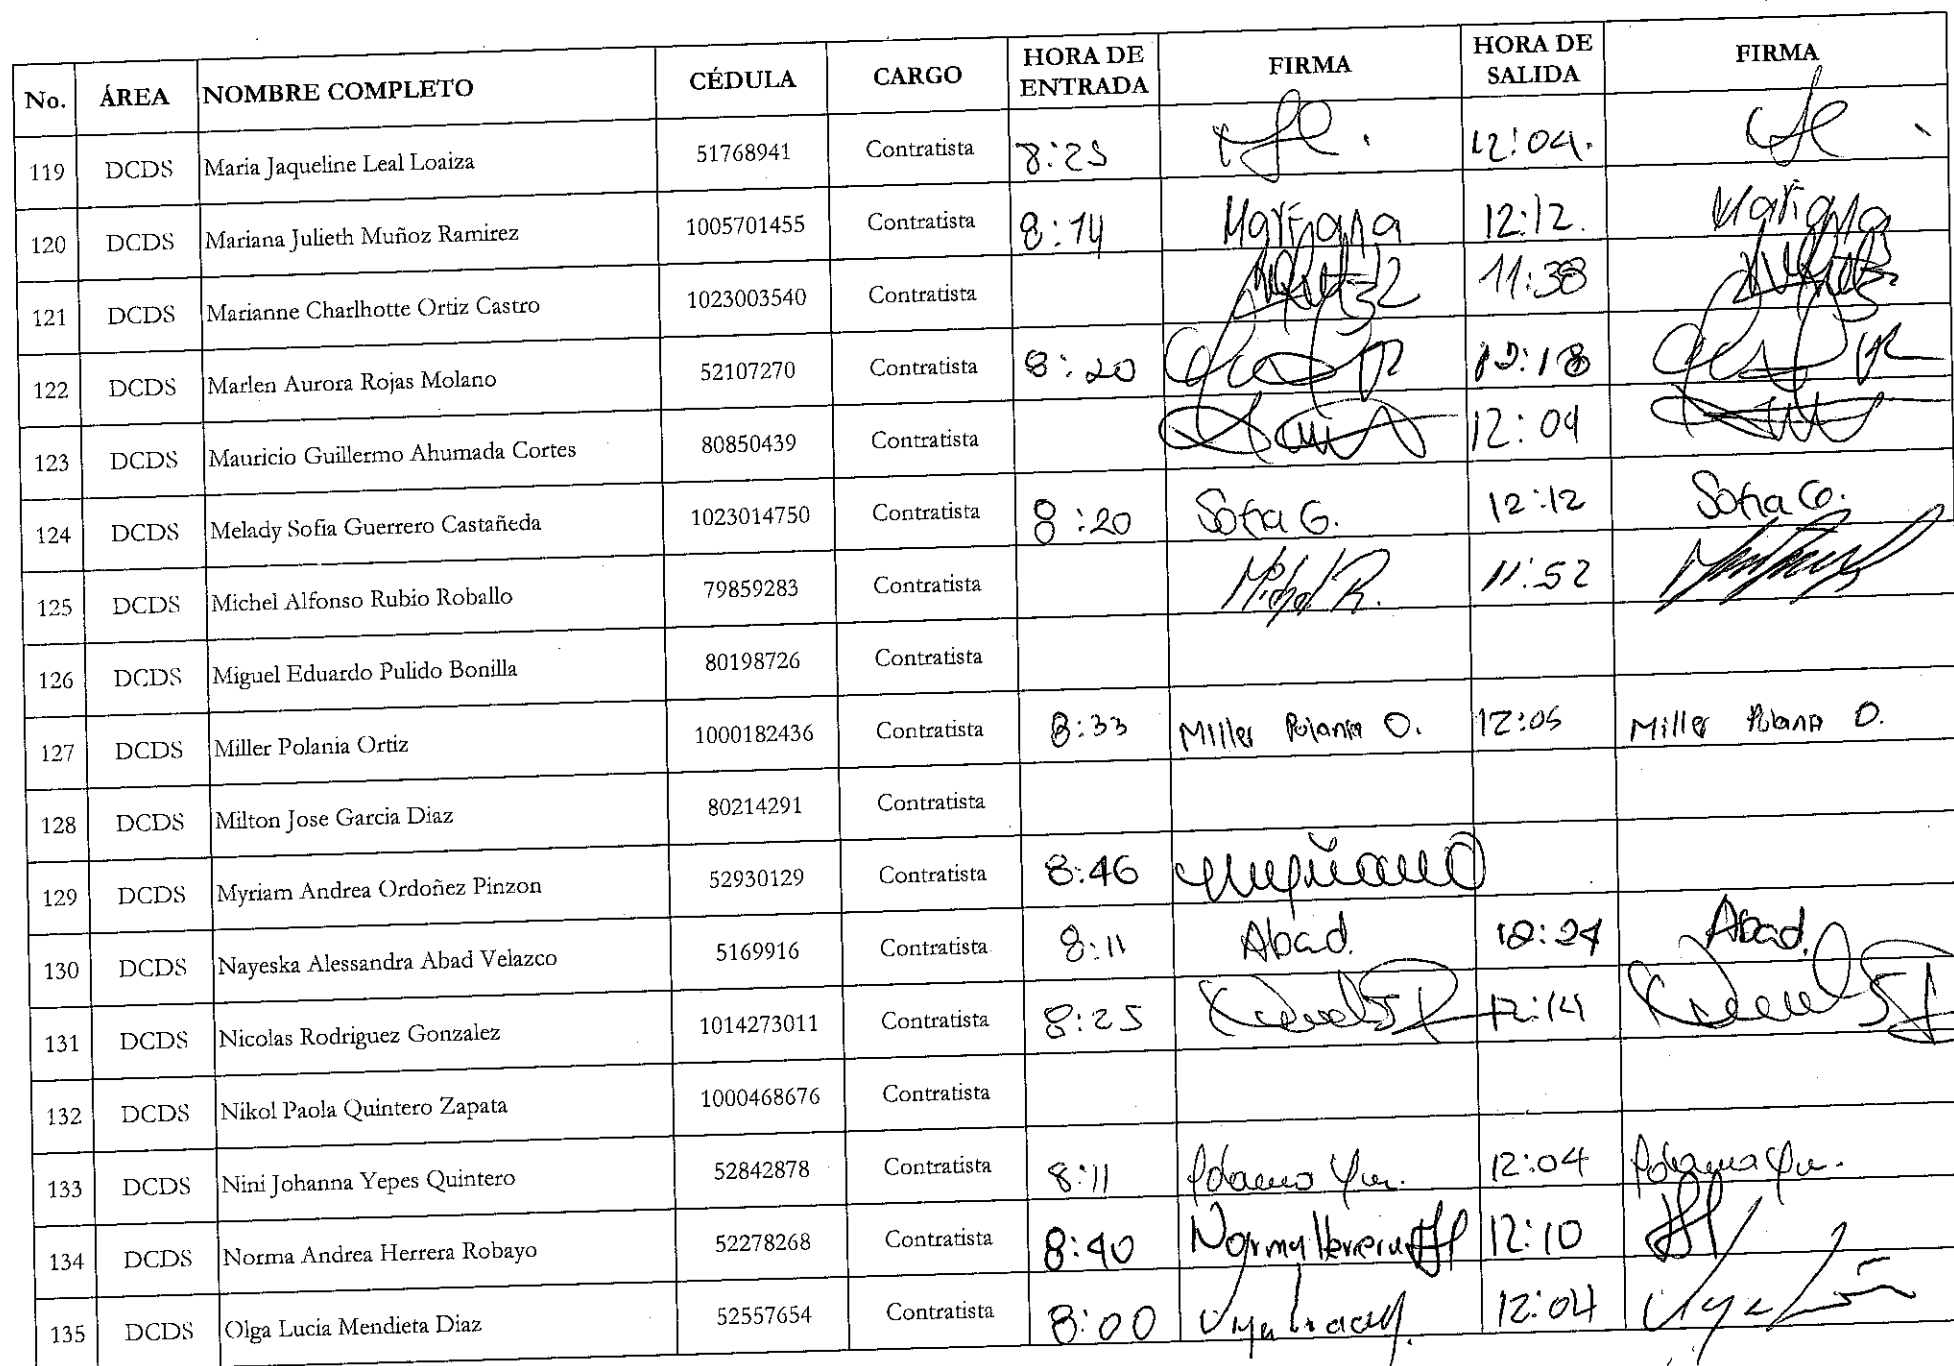 No. ÁREA NOMBRE COMPLETO CÉDULA CARGO HORA DE ENTRADA FIRMA HORA DE SALIDA FIRMA
119 DCDS Maria Jaqueline Leal Loaiza 51768941 Contratista 8:25 12:04.
120 DCDS Mariana Julieth Muñoz Ramirez 1005701455 Contratista 8:14 Mariana 12:12. Mariana
121 DCDS Marianne Charlhotte Ortiz Castro 1023003540 Contratista 11:38
122 DCDS Marlen Aurora Rojas Molano 52107270 Contratista 8:20 12:18
123 DCDS Mauricio Guillermo Ahumada Cortes 80850439 Contratista 12:09
124 DCDS Melady Sofia Guerrero Castañeda 1023014750 Contratista 8:20 Sofia G. 12:12 Sofia G.
125 DCDS Michel Alfonso Rubio Roballo 79859283 Contratista Michel R. 11:52
126 DCDS Miguel Eduardo Pulido Bonilla 80198726 Contratista
127 DCDS Miller Polania Ortiz 1000182436 Contratista 8:33 Miller Polania O. 12:05 Miller Polania O.
128 DCDS Milton Jose Garcia Diaz 80214291 Contratista
129 DCDS Myriam Andrea Ordoñez Pinzon 52930129 Contratista 8:46
130 DCDS Nayeska Alessandra Abad Velazco 5169916 Contratista 8:11 Abad. 12:24 Abad.
131 DCDS Nicolas Rodriguez Gonzalez 1014273011 Contratista 8:25 12:14
132 DCDS Nikol Paola Quintero Zapata 1000468676 Contratista
133 DCDS Nini Johanna Yepes Quintero 52842878 Contratista 8:11 12:04
134 DCDS Norma Andrea Herrera Robayo 52278268 Contratista 8:40 Norma Herrera 12:10
135 DCDS Olga Lucia Mendieta Diaz 52557654 Contratista 8:00 12:04